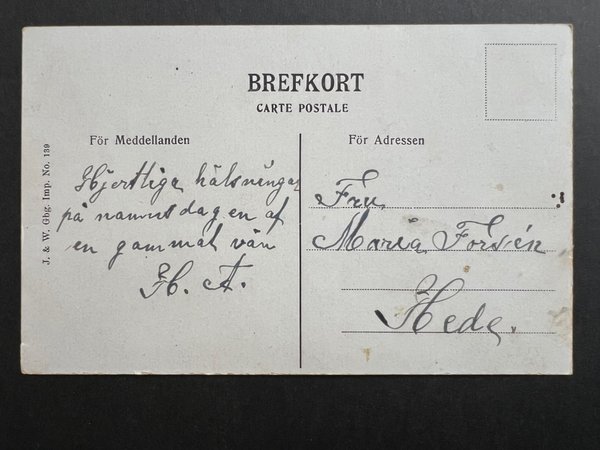 BREFKORT
CARTE POSTALE
För Meddellanden
För Adressen
Hjertliga hälsningar
på namnsdagen af
en gammal vän
H. A.
Fru
Maria Forsén
Hede.
J. & W. Gbg. Imp. No. 139